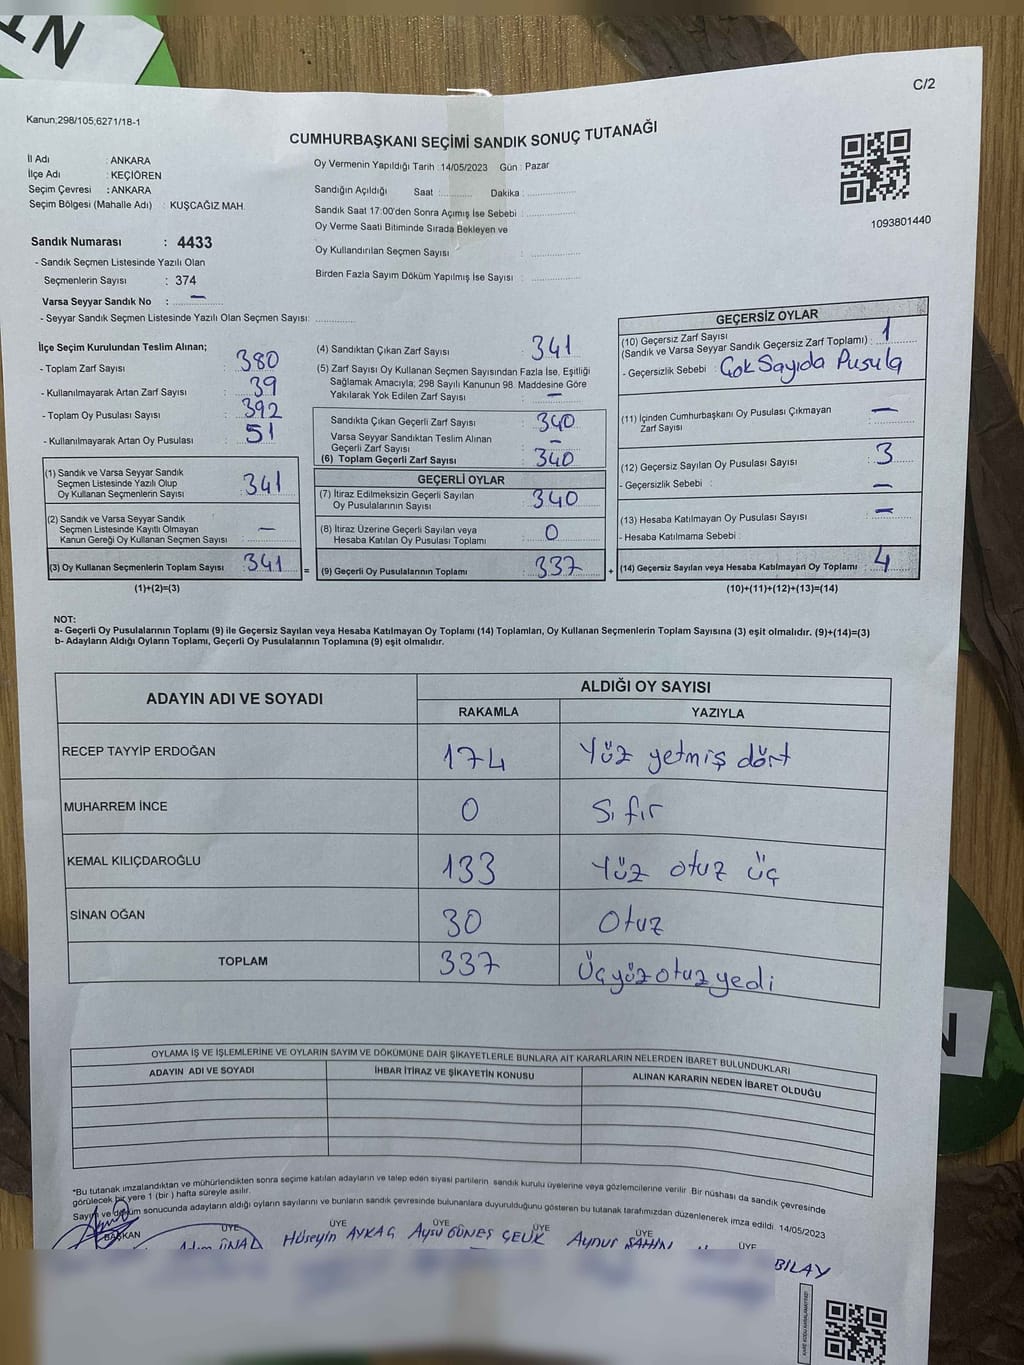 C/2
Kanun;298/105,6271/18-1
CUMHURBAŞKANI SEÇİMİ SANDIK SONUÇ TUTANAĞI
1093801440
İl Adı : ANKARA
İlçe Adı : KEÇİÖREN
Seçim Çevresi : ANKARA
Seçim Bölgesi (Mahalle Adı) : KUŞCAĞIZ MAH.
Sandık Numarası : 4433
- Sandık Seçmen Listesinde Yazılı Olan
Seçmenlerin Sayısı : 374
Varsa Seyyar Sandık No : —
- Seyyar Sandık Seçmen Listesinde Yazılı Olan Seçmen Sayısı:
Oy Vermenin Yapıldığı Tarih : 14/05/2023 Gün : Pazar
Sandığın Açıldığı Saat : Dakika :
Sandık Saat 17:00'den Sonra Açımış İse Sebebi :
Oy Verme Saati Bitiminde Sırada Bekleyen ve
Oy Kullandırılan Seçmen Sayısı :
Birden Fazla Sayım Döküm Yapılmış İse Sayısı :
İlçe Seçim Kurulundan Teslim Alınan;
- Toplam Zarf Sayısı : 380
- Kullanılmayarak Artan Zarf Sayısı : 39
- Toplam Oy Pusulası Sayısı : 392
- Kullanılmayarak Artan Oy Pusulası : 51
(1) Sandık ve Varsa Seyyar Sandık
Seçmen Listesinde Yazılı Olup
Oy Kullanan Seçmenlerin Sayısı : 341
(2) Sandık ve Varsa Seyyar Sandık
Seçmen Listesinde Kayıtlı Olmayan
Kanun Gereği Oy Kullanan Seçmen Sayısı : —
(3) Oy Kullanan Seçmenlerin Toplam Sayısı : 341
(1)+(2)=(3)
(4) Sandıktan Çıkan Zarf Sayısı : 341
(5) Zarf Sayısı Oy Kullanan Seçmen Sayısından Fazla İse, Eşitliği
Sağlamak Amacıyla; 298 Sayılı Kanunun 98. Maddesine Göre
Yakılarak Yok Edilen Zarf Sayısı : —
Sandıkta Çıkan Geçerli Zarf Sayısı : 340
Varsa Seyyar Sandıktan Teslim Alınan
Geçerli Zarf Sayısı : —
(6) Toplam Geçerli Zarf Sayısı : 340
GEÇERLİ OYLAR
(7) İtiraz Edilmeksizin Geçerli Sayılan
Oy Pusulalarının Sayısı : 340
(8) İtiraz Üzerine Geçerli Sayılan veya
Hesaba Katılan Oy Pusulası Toplamı : 0
= (9) Geçerli Oy Pusulalarının Toplamı : 337
GEÇERSİZ OYLAR
(10) Geçersiz Zarf Sayısı
(Sandık ve Varsa Seyyar Sandık Geçersiz Zarf Toplamı) : 1
- Geçersizlik Sebebi : Çok Sayıda Pusula
(11) İçinden Cumhurbaşkanı Oy Pusulası Çıkmayan
Zarf Sayısı : —
(12) Geçersiz Sayılan Oy Pusulası Sayısı : 3
- Geçersizlik Sebebi : —
(13) Hesaba Katılmayan Oy Pusulası Sayısı : —
- Hesaba Katılmama Sebebi :
+ (14) Geçersiz Sayılan veya Hesaba Katılmayan Oy Toplamı : 4
(10)+(11)+(12)+(13)=(14)
NOT:
a- Geçerli Oy Pusulalarının Toplamı (9) ile Geçersiz Sayılan veya Hesaba Katılmayan Oy Toplamı (14) Toplamları, Oy Kullanan Seçmenlerin Toplam Sayısına (3) eşit olmalıdır. (9)+(14)=(3)
b- Adayların Aldığı Oyların Toplamı, Geçerli Oy Pusulalarının Toplamına (9) eşit olmalıdır.
ADAYIN ADI VE SOYADI ALDIĞI OY SAYISI
RAKAMLA YAZIYLA
RECEP TAYYİP ERDOĞAN 174 Yüz yetmiş dört
MUHARREM İNCE 0 Sıfır
KEMAL KILIÇDAROĞLU 133 Yüz otuz üç
SİNAN OĞAN 30 Otuz
TOPLAM 337 Üçyüzotuzyedi
OYLAMA İŞ VE İŞLEMLERİNE VE OYLARIN SAYIM VE DÖKÜMÜNE DAİR ŞİKAYETLERLE BUNLARA AİT KARARLARIN NELERDEN İBARET BULUNDUKLARI
ADAYIN ADI VE SOYADI İHBAR İTİRAZ VE ŞİKAYETİN KONUSU ALINAN KARARIN NEDEN İBARET OLDUĞU
*Bu tutanak imzalandıktan ve mühürlendikten sonra seçime katılan adayların ve talep eden siyasi partilerin sandık kurulu üyelerine veya gözlemcilerine verilir. Bir nüshası da sandık çevresinde
görülecek bir yere 1 (bir ) hafta süreyle asılır.
Sayım ve döküm sonucunda adayların aldığı oyların sayılarını ve bunların sandık çevresinde bulunanlara duyurulduğunu gösteren bu tutanak tarafımızdan düzenlenerek imza edildi. 14/05/2023
BAŞKAN ÜYE ÜYE ÜYE ÜYE ÜYE ÜYE
ÜNAL Hüseyin AYKAÇ Aysu GÜNEŞ ÇELİK Aynur ŞAHİN BILAY